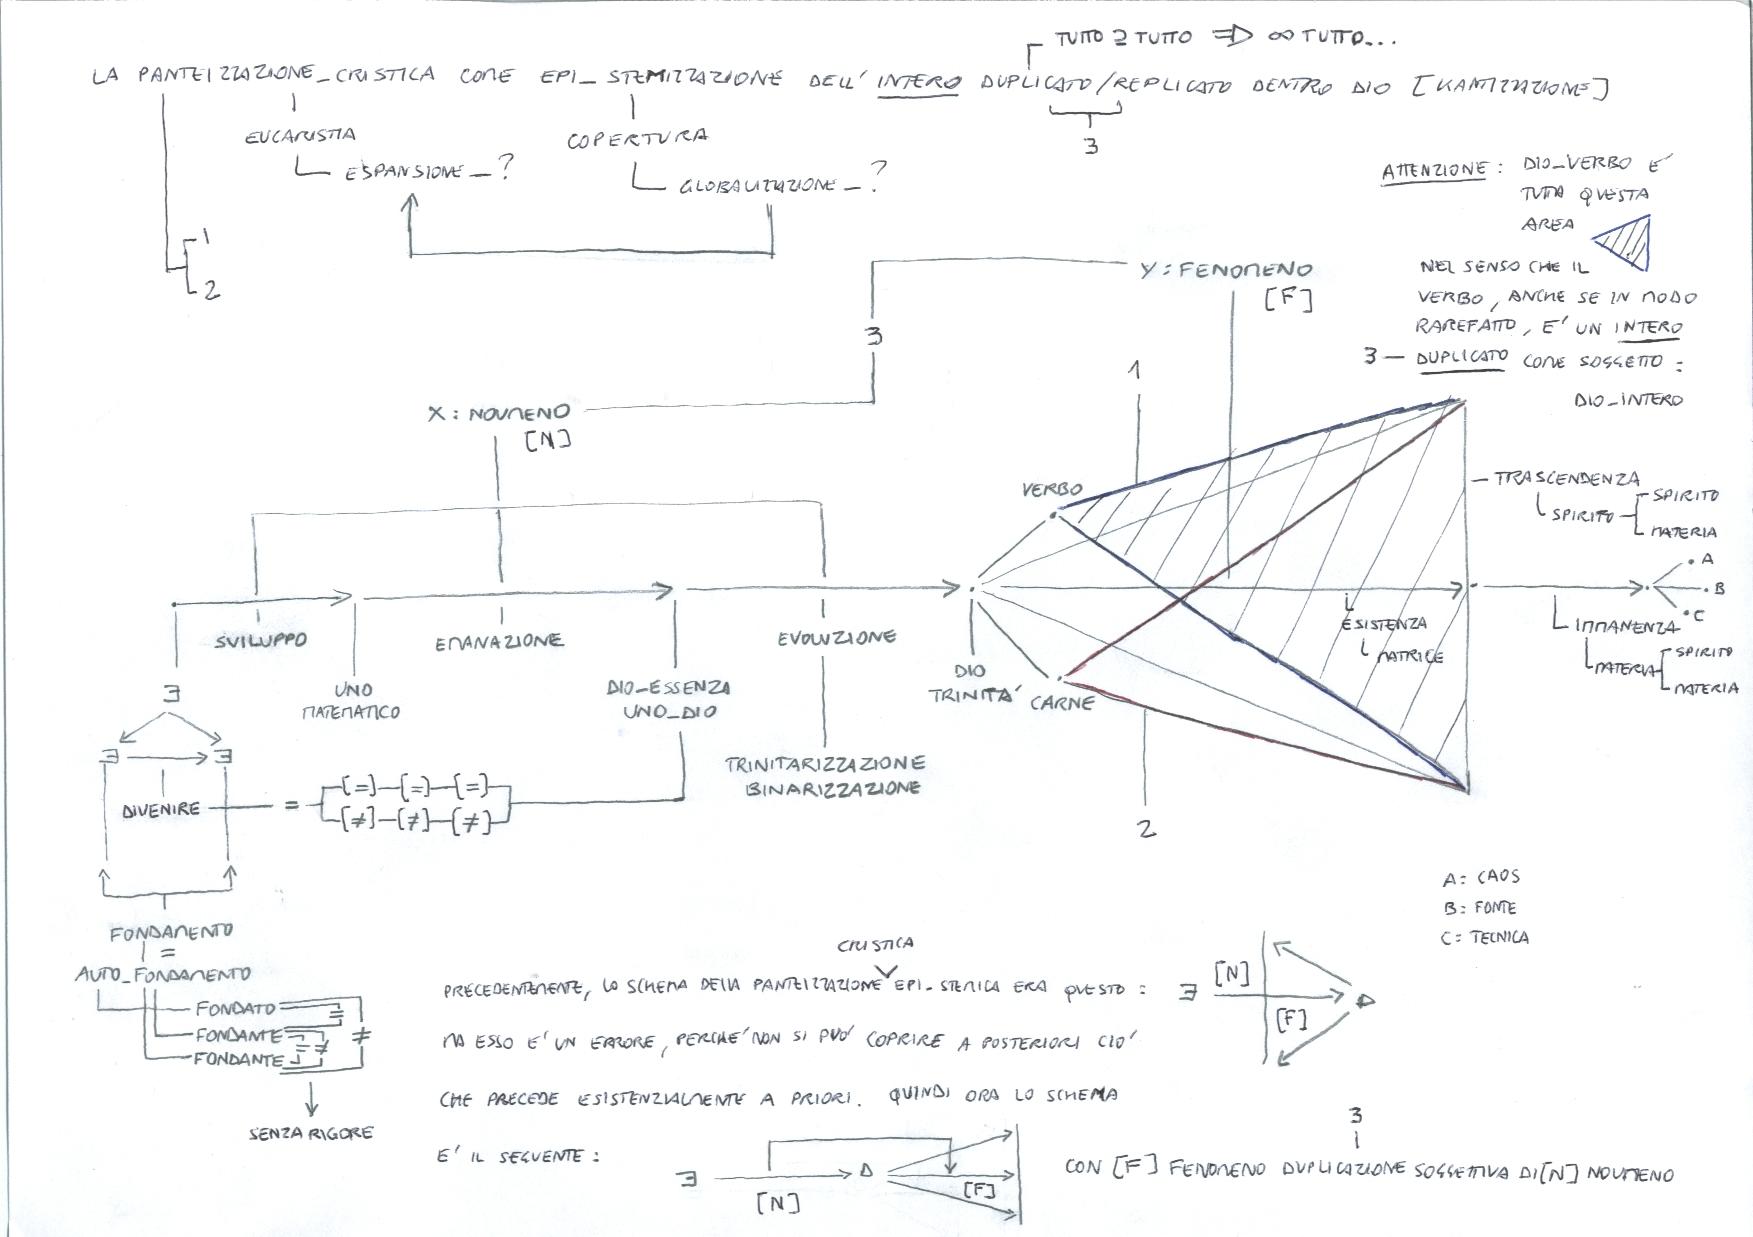 TUTTO ⊇ TUTTO ⇒ ∞ TUTTO...
LA PANTEIZZAZIONE_CRISTICA COME EPI_STEMIZZAZIONE DELL' INTERO DUPLICATO/REPLICATO DENTRO DIO [KANTIZZAZIONE]
EUCARISTIA
ESPANSIONE_?
COPERTURA
GLOBALIZZAZIONE_?
3
1
2
ATTENZIONE: DIO_VERBO E'
TUTTA QUESTA
AREA
NEL SENSO CHE IL
VERBO, ANCHE SE IN MODO
RAREFATTO, E' UN INTERO
3 — DUPLICATO COME SOGGETTO:
DIO_INTERO
Y: FENOMENO
[F]
3
X: NOUMENO
[N]
1
VERBO
TRASCENDENZA
SPIRITO
SPIRITO
MATERIA
A
B
C
IMMANENZA
MATERIA
SPIRITO
MATERIA
ESISTENZA
MATRICE
SVILUPPO
EMANAZIONE
EVOLUZIONE
DIO
TRINITA'
CARNE
2
∃
UNO
MATEMATICO
DIO_ESSENZA
UNO_DIO
TRINITARIZZAZIONE
BINARIZZAZIONE
∃ ∃
DIVENIRE
= [=]—[=]—[=]
[≠]—[≠]—[≠]
FONDAMENTO
=
AUTO_FONDAMENTO
FONDATO
FONDANTE
FONDANTE
= = ≠ ≠
SENZA RIGORE
A: CAOS
B: FONTE
C: TECNICA
CRISTICA
PRECEDENTEMENTE, LO SCHEMA DELLA PANTEIZZAZIONE EPI_STEMICA ERA QUESTO: ∃ [N] [F] D
MA ESSO E' UN ERRORE, PERCHE' NON SI PUO' COPRIRE A POSTERIORI CIO'
CHE PRECEDE ESISTENZIALMENTE A PRIORI. QUINDI ORA LO SCHEMA
E' IL SEGUENTE: ∃ [N] D [F]
3
CON [F] FENOMENO DUPLICAZIONE SOGGETTIVA DI [N] NOUMENO